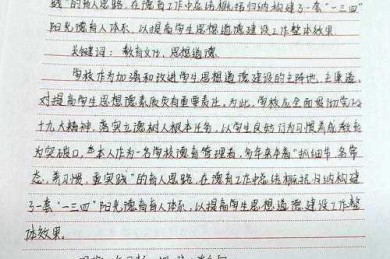 线"的育人思路,在德育工作中总结概括归纳构建了一套"一三四"
阳光德育育人体系,以提高学生思想道德建设工作整体效果。
关键词:教育文化,思想道德
学校作为加强和改进学生思想道德建设的主阵地、主渠道,
对提高学生思想道德素质负有重要责任,为此,学校应全面贯彻党的
十九大精神,落实立德树人根本任务,以学生良好行为习惯养成教育
为突破口,本人作为一名学校德育管理者,多年来本着"抓细节、务常
态、养习惯、重实践"的育人思路,在德育工作中总结概括归纳构建
了一套"一三四"阳光德育育人体系,以提高学生思想道德建设工作整
体效果。